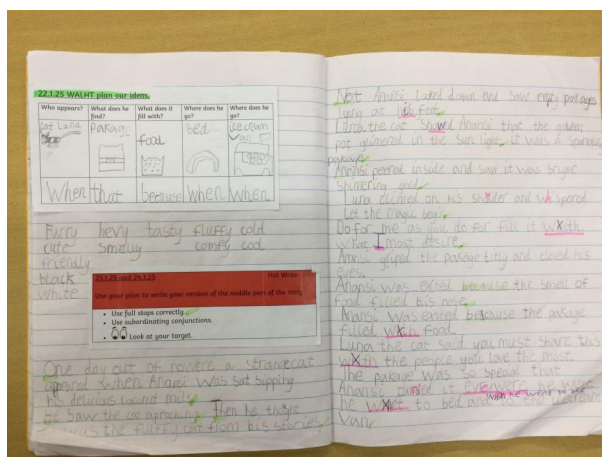 22.1.25 WALHT plan our ideas.
Who appears? What does he find? What does it fill with? Where does he go? Where does he go?
cat Luna parkage food bed ice cream van
When that because when when
Furry hevy tasty fluffy cold
cute smelly comfy cool
friendly
black
white
23.1.25 and 24.1.25 Hot Write
Use your plan to write your version of the middle part of the story.
Use full stops correctly.
Use subordinating conjunctions.
Look at your target.
One day out of nowere a strange cat
appeared when Anansi was sat sipping
his delicous coconut milk
He saw the cat aproching. Then he thought
was the fluffy cat from his stories.
Next Anansi looked down and saw empty parkages
lying at his feet.
Luna the cat showed Anansi that the golden
pot glimered in the sun light. It was a
parkage
Anansi peered inside and saw it was bright
shimering gold
Luna climed on his sholder and wispered
Let the magic begin
Do for me as you do for fill it with
what I most desire.
Anansi griped the parkage titly and closed his
eyes.
Anansi was exited because the smell of
food filled his nose.
Anansi was exited because the parkage
filled with food.
Luna the cat said you must share this
with the people you love the most.
The parkage was so speual that
Anansi carried it everwere he went
when he went to
he to bed and to the icecream
van